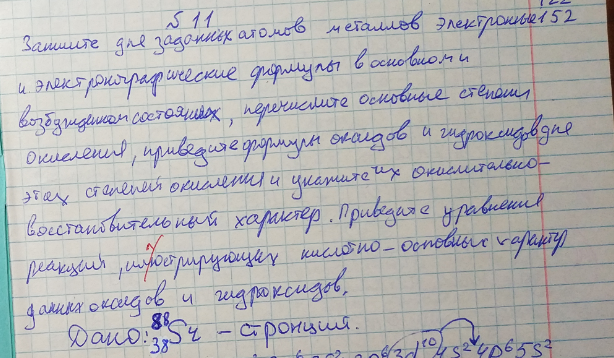 № 11
Запишите для заданных атомов металлов электронные 152
и электронографические формулы в основном и
возбужденном состояниях, перечислите основные степени
окисления, приведите формулы оксидов и гидроксидов для
этих степеней окисления и укажите их окислительно-
восстановительный характер. Приведите уравнения
реакций, иллюстрирующих кислотно-основных характер
данных оксидов и гидроксидов.
Дано: 88 38 Sr - стронций.
3d10 4s2 4p6 5s2